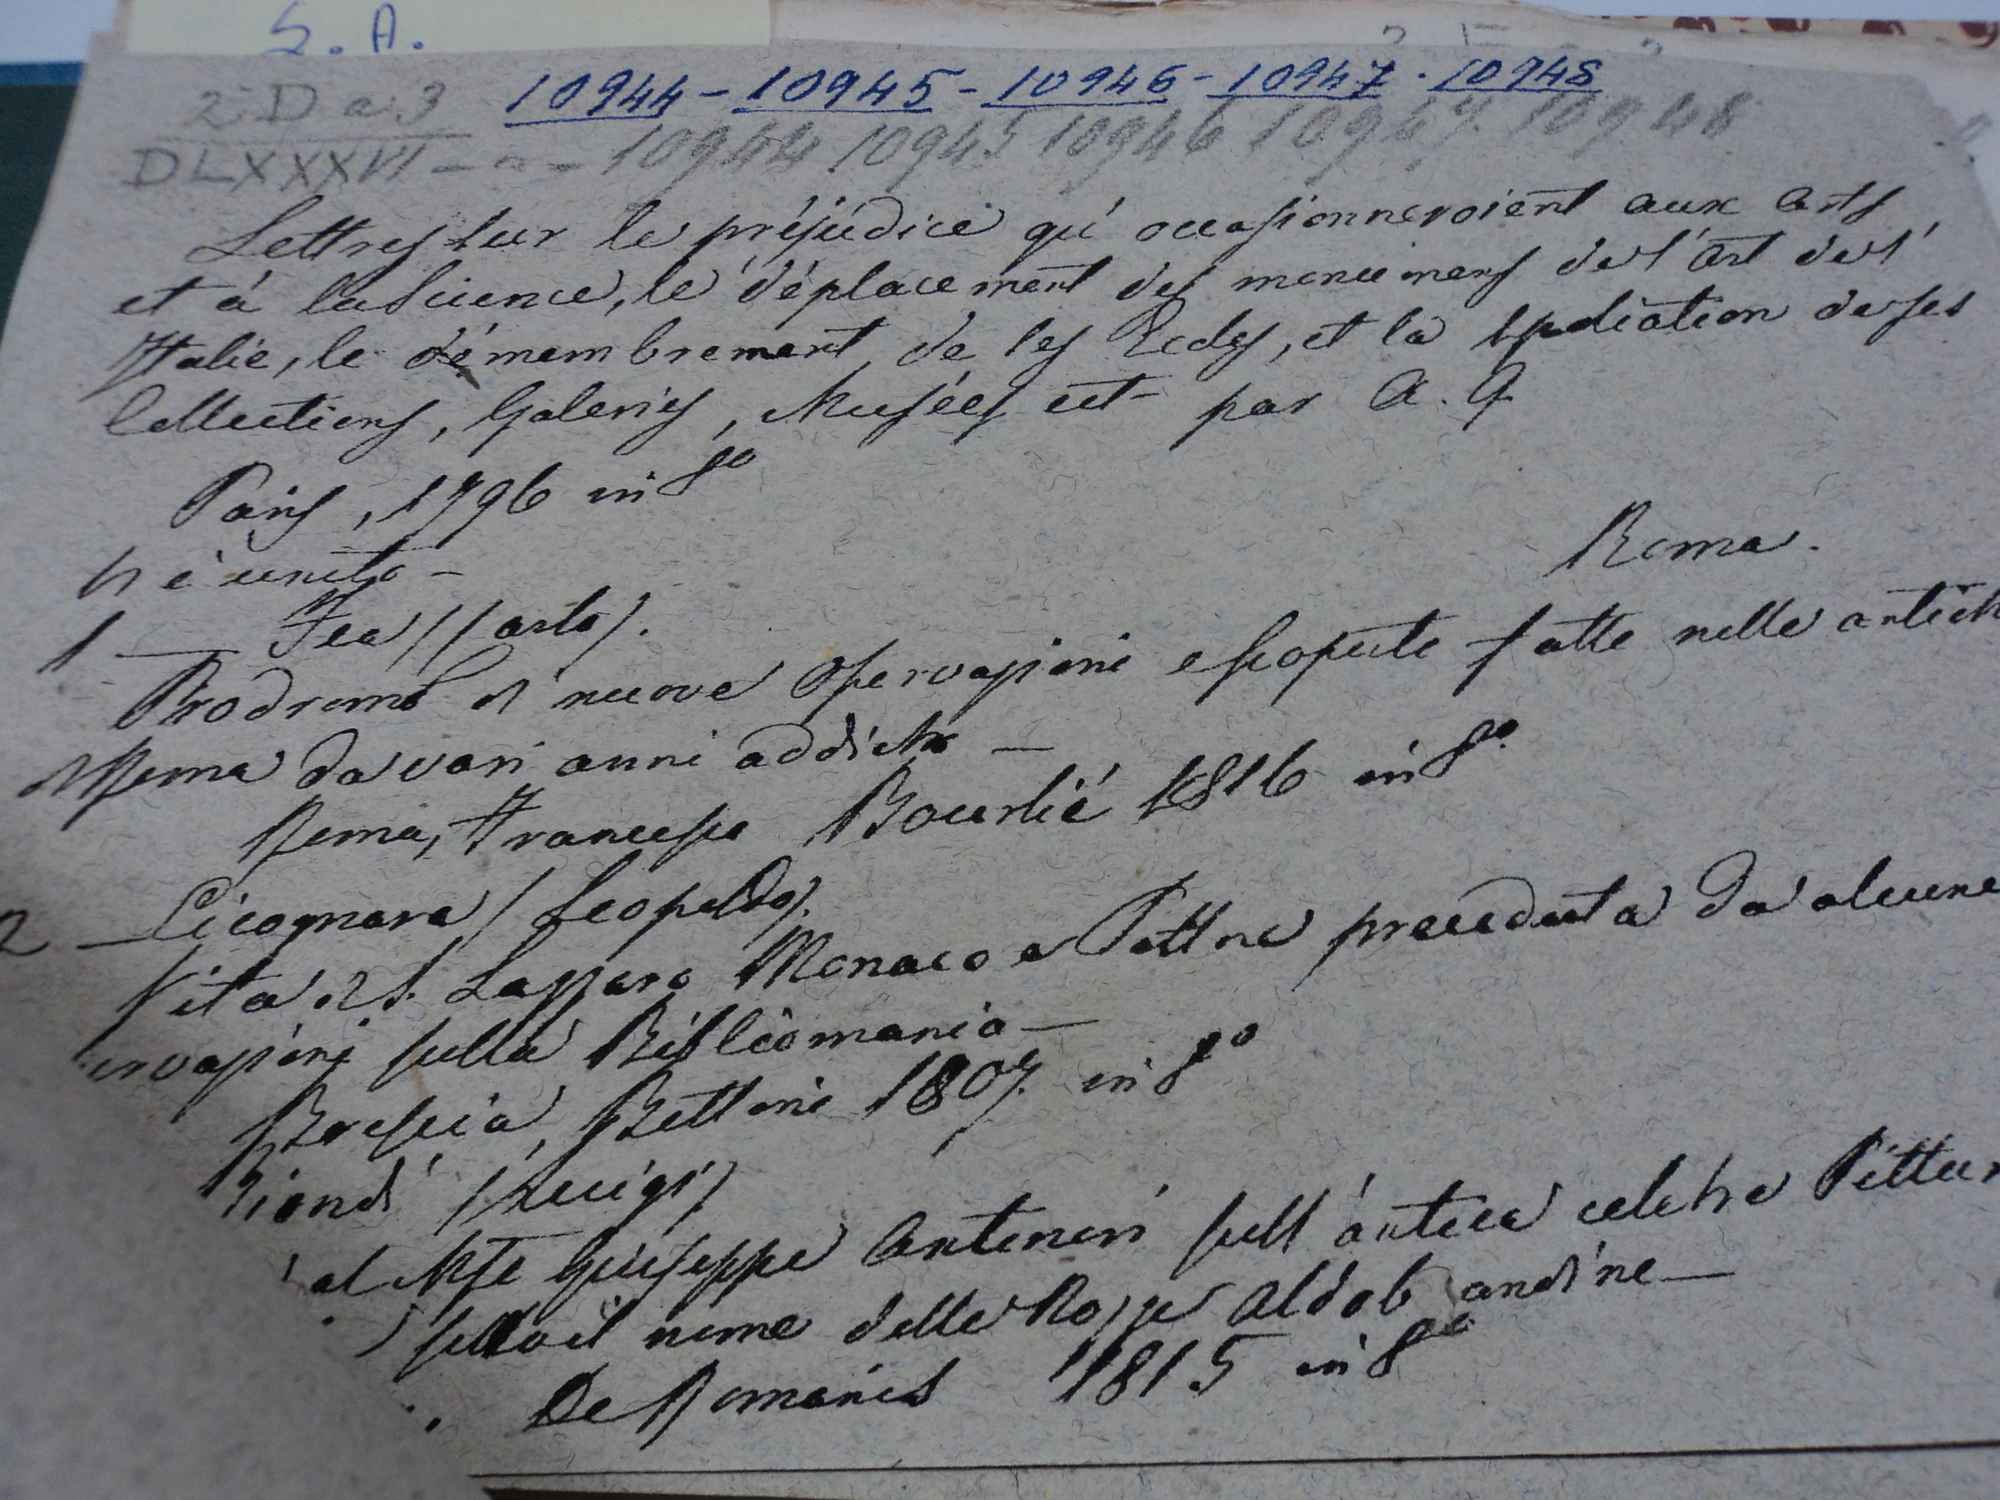 S. A.
10944 - 10945 - 10946 - 10947 - 10948
2. D a. 3
DLXXXVI - a - 10944 10945 10946 10947. 10948
Lettres sur le préjudice qu'occasionneroient aux arts
et à la Science, le déplacement des monumens de l'art de l'
Italie, le démembrement de ses Ecoles, et la spoliation de ses
Collections, Galeries, Musées ect - par A. Q.
Paris, 1796 in 8º
Vi è unito -
Roma.
1 — Fea / Carlo /.
Prodromo di nuove osservazioni e scoperte fatte nelle antich
di Roma da vari anni addietro —
Roma, Francesco Bourlié 1816 in 8º.
2 — Cicognara / Leopoldo /.
Vita di S. Lazzaro Monaco e Pittore preceduta da alcune
ervazioni sulla Bibliomania —
Brescia, Bettoni 1807. in 8º
Biondi / Luigi /
al Giuseppe Antinori sull'antica celebre Pittur
sotto il nome delle Nozze Aldobrandine —
De Romanis 1815 in 8º